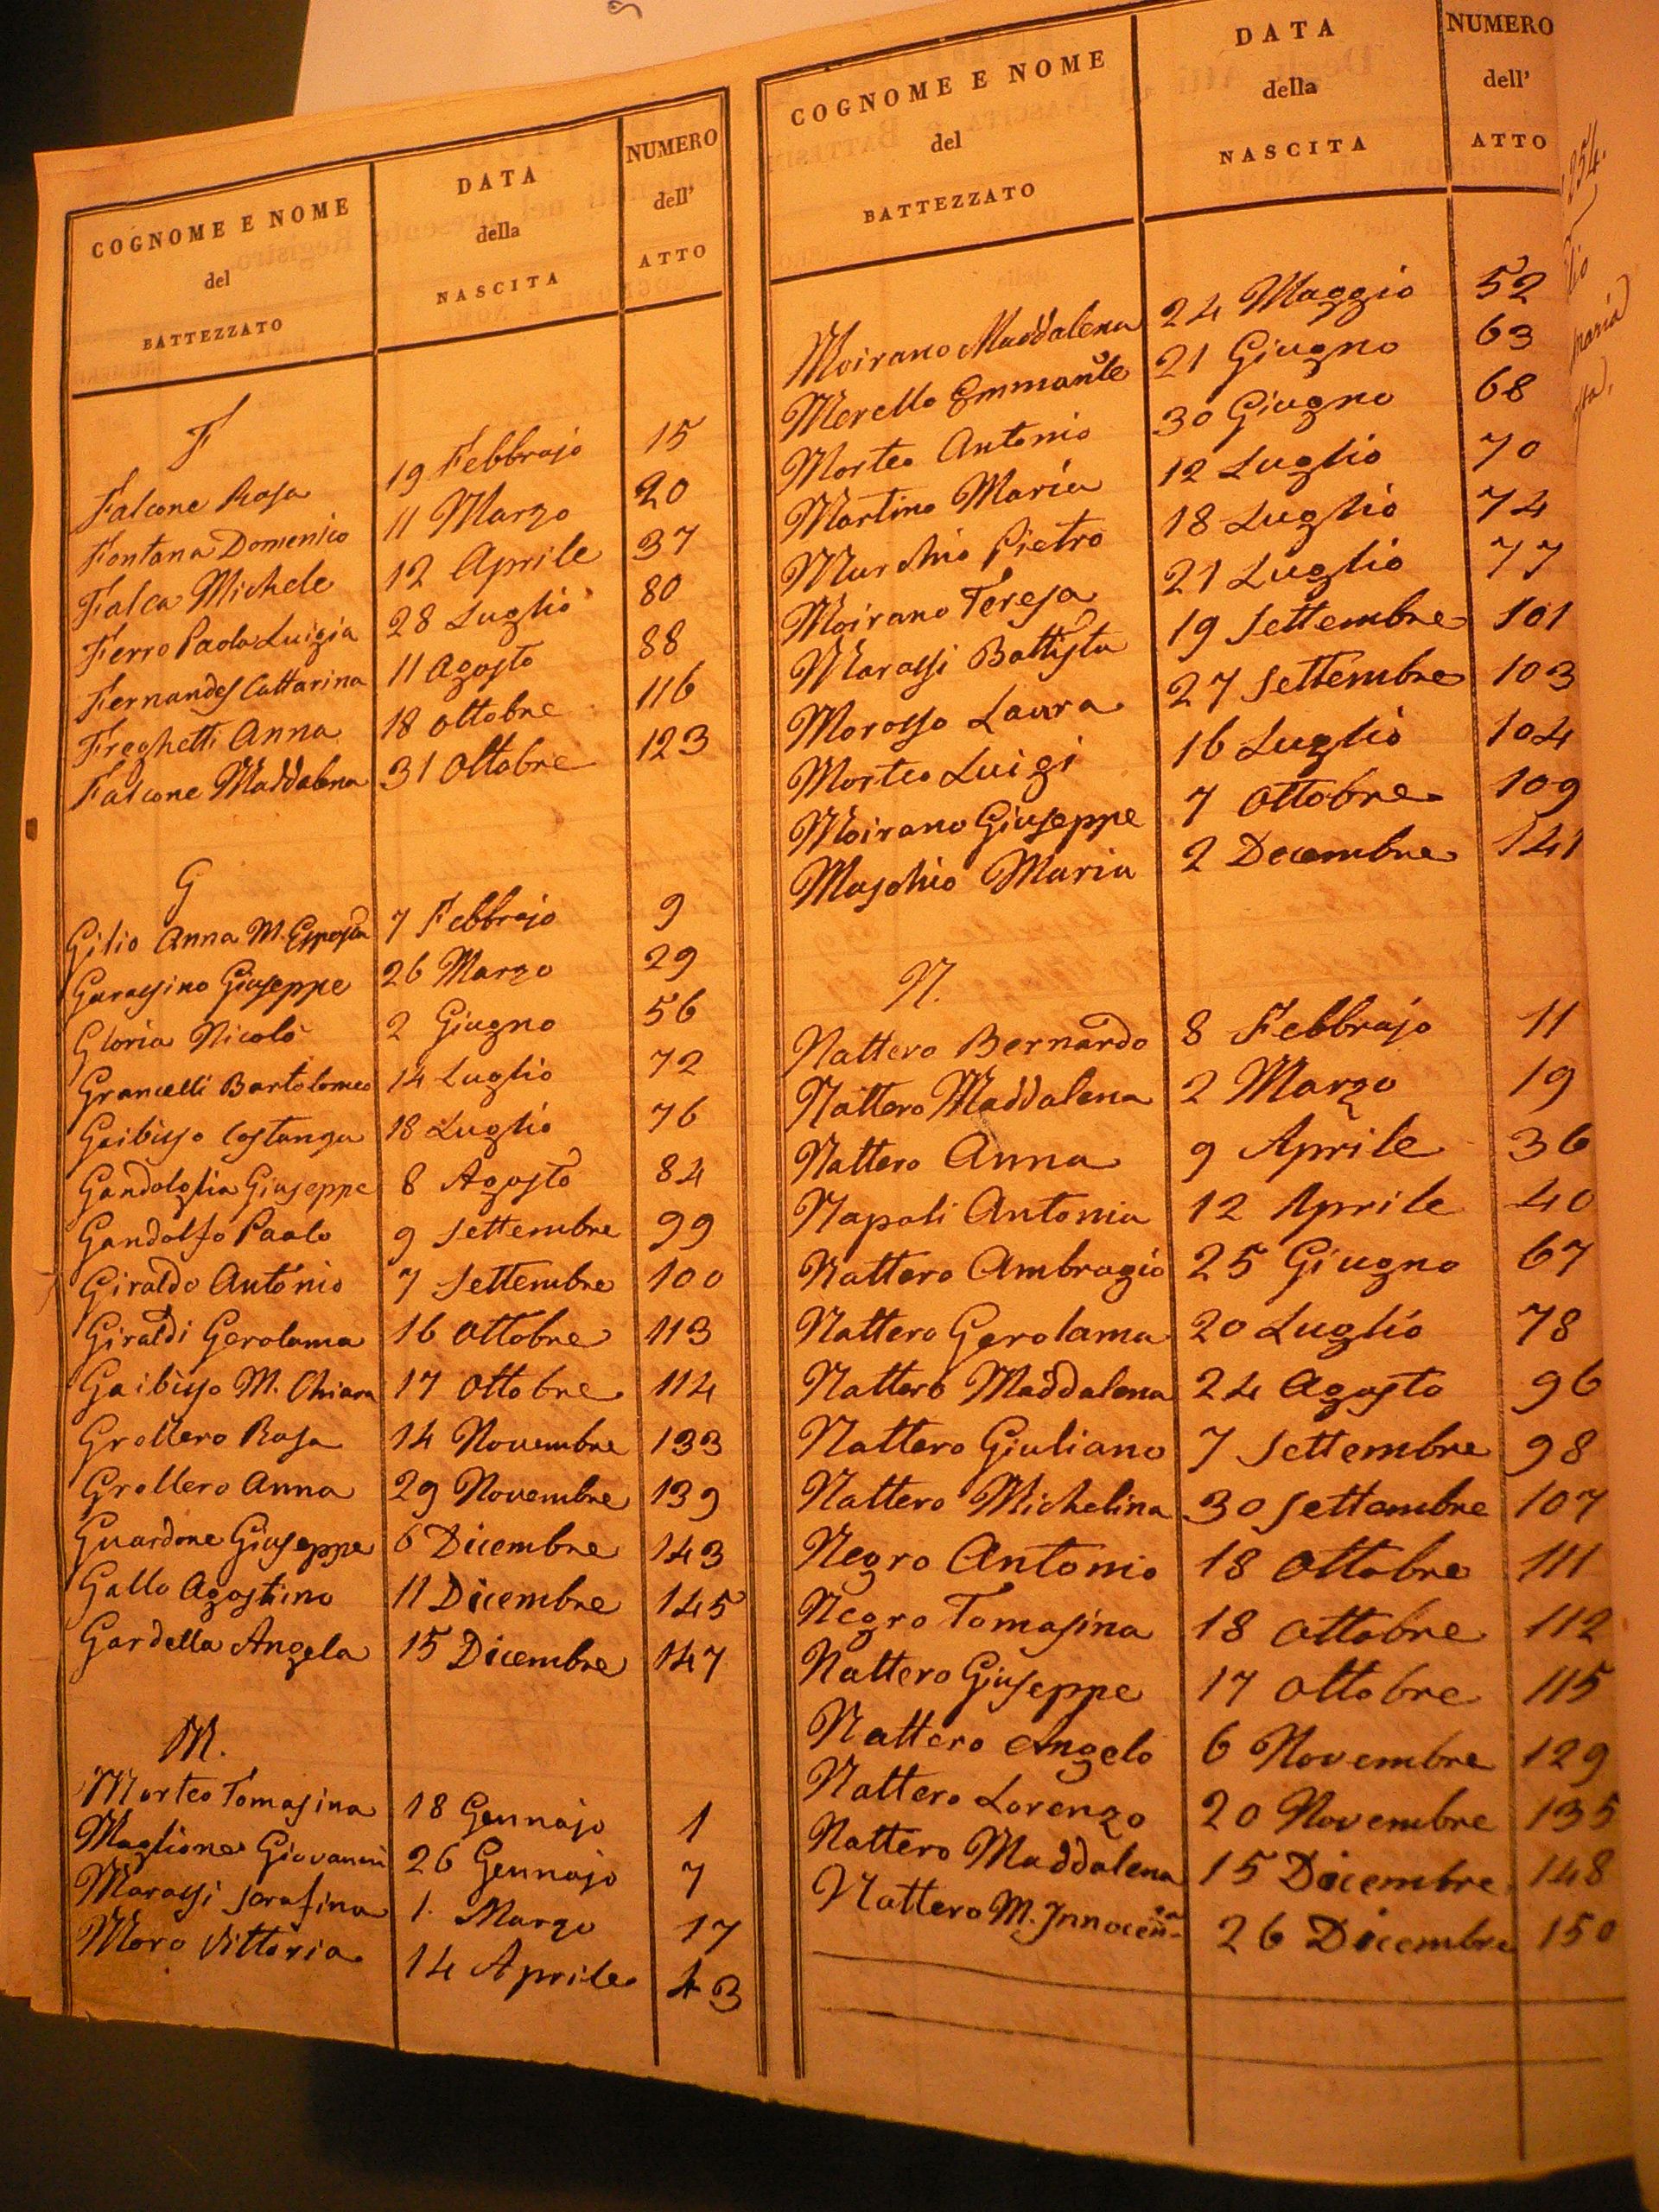 COGNOME E NOME
del
BATTEZZATO
DATA
della
NASCITA
NUMERO
dell'
ATTO
F
Falcone Rosa 19 Febbrajo 15
Fontana Domenico 11 Marzo 20
Falca Michele 12 Aprile 37
Ferro Paola Luigia 28 Luglio 80
Fernandes Cattarina 11 Agosto 88
Freghetti Anna 18 Ottobre 116
Falcone Maddalena 31 Ottobre 123
G
Gilio Anna M. Esposta 7 Febbrajo 9
Garassino Giuseppe 26 Marzo 29
Gloria Nicolò 2 Giugno 56
Grancelli Bartolomeo 14 Luglio 72
Gaibisso Costanza 18 Luglio 76
Gandolglia Giuseppe 8 Agosto 84
Gandolfo Paolo 9 Settembre 99
Giraldo Antonio 7 Settembre 100
Giraldi Gerolama 16 Ottobre 113
Gaibisso M. Chiara 17 Ottobre 114
Grollero Rosa 14 Novembre 133
Grollero Anna 29 Novembre 139
Guardone Giuseppe 6 Dicembre 143
Gallo Agostino 11 Dicembre 145
Gardella Angela 15 Dicembre 147
M.
Morteo Tomasina 18 Gennajo 1
Maglione Giovanni 26 Gennajo 7
Marassi Serafina 1. Marzo 17
Moro Vittoria 14 Aprile 43
COGNOME E NOME
del
BATTEZZATO
DATA
della
NASCITA
NUMERO
dell'
ATTO
Moirano Maddalena 24 Maggio 52
Merello Emmanle 21 Giugno 63
Morteo Antonio 30 Giugno 68
Martino Maria 12 Luglio 70
Murchio Pietro 18 Luglio 74
Moirano Teresa 21 Luglio 77
Marassi Battista 19 Settembre 101
Morosso Laura 27 Settembre 103
Morteo Luigi 16 Luglio 104
Moirano Giuseppe 7 Ottobre 109
Maschio Maria 2 Decembre 141
N.
Nattero Bernardo 8 Febbrajo 11
Nattero Maddalena 2 Marzo 19
Nattero Anna 9 Aprile 36
Napoli Antonia 12 Aprile 40
Nattero Ambrogio 25 Giugno 67
Nattero Gerolama 20 Luglio 78
Nattero Maddalena 24 Agosto 96
Nattero Giuliano 7 Settembre 98
Nattero Michelina 30 Settembre 107
Negro Antonio 18 Ottobre 111
Negro Tomasina 18 Ottobre 112
Nattero Giuseppe 17 Ottobre 115
Nattero Angelo 6 Novembre 129
Nattero Lorenzo 20 Novembre 135
Nattero Maddalena 15 Dicembre 148
Nattero M. Innocenza 26 Dicembre 150